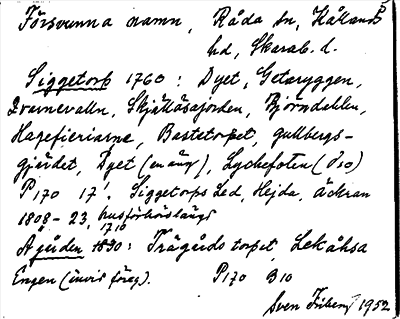 Försvunna namn, Råda sn, Kållands
hd, Skarab. l.
Siggetorp 1760: Dyet, Getaryggen,
Qvarnevalln, Skjällåsajorden, Björndahlen,
Hagefierians, Bastetorpet, gullbergs-
gjärdet, Dyet (en äng), Lyckefoten (öso)
P170 17. Siggetorps Led, Hejda, Åckran
1808-23, husförhörslängd
1710
Agården 1830: Trägårds torpet, Lekåhsa
Engen (invis föreg). P170 B10
Sven 1952